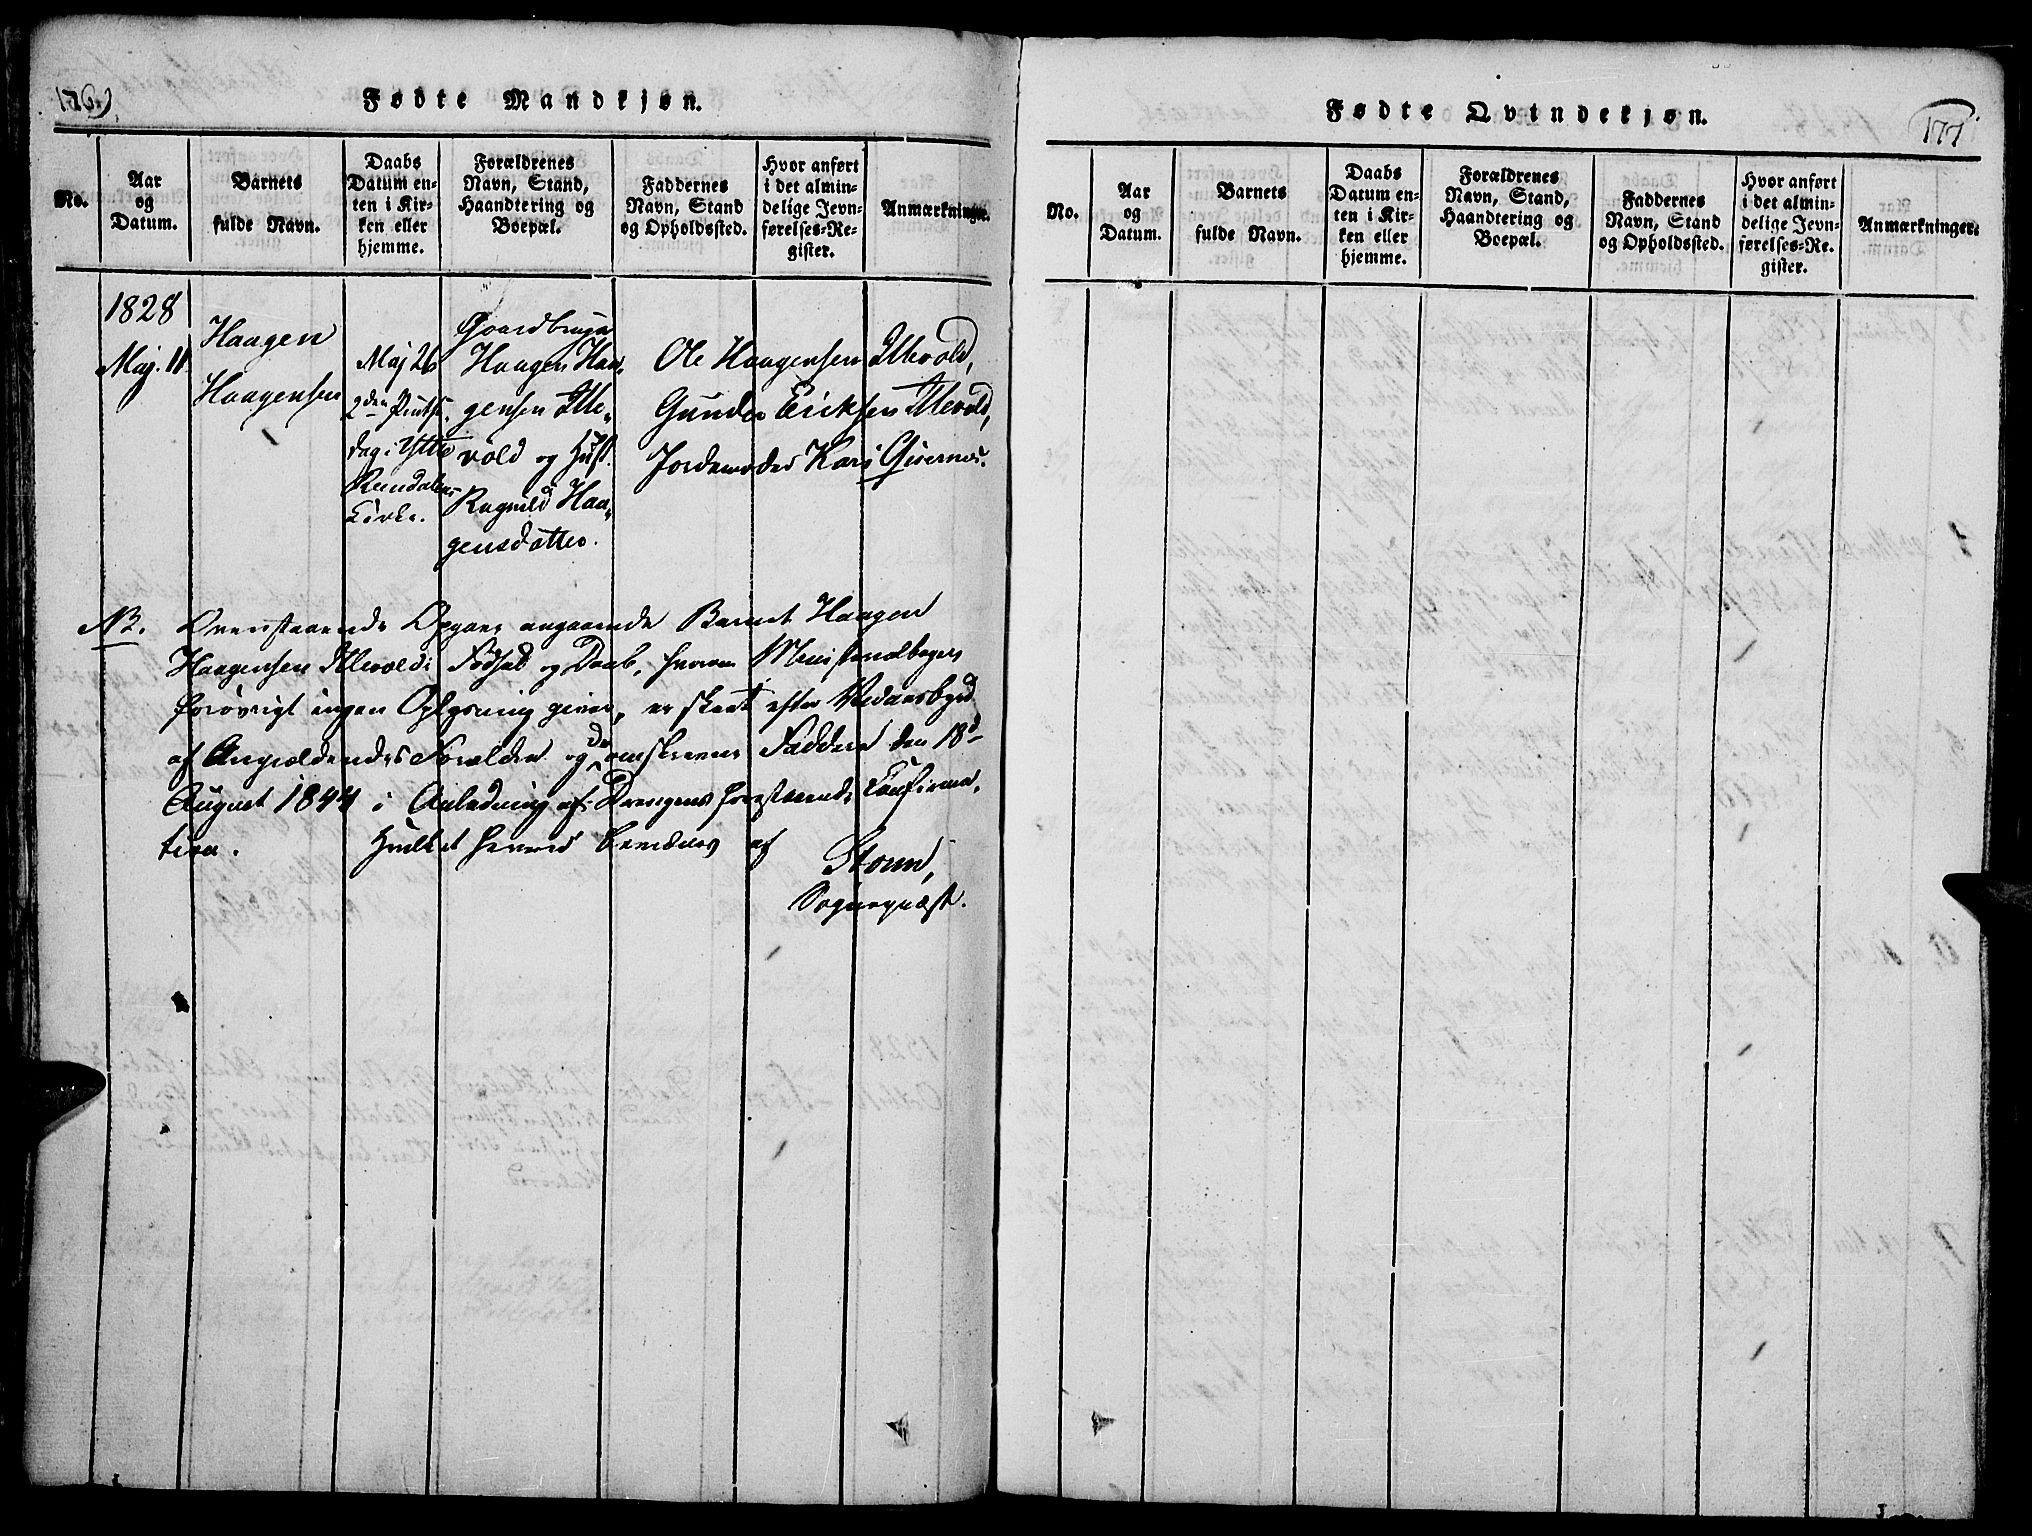 176.
Fødte Mandkjøn.
No.
Aar
og
Datum.
Barnets
fulde Navn.
Daabs
Datum en-
ten i Kir-
ken eller
hjemme.
Forældrenes
Navn, Stand,
Haandtering og
Boepæl.
Faddernes
Navn, Stand
og Opholdssted.
Hvor anført
i det almin-
delige Jevn-
førelses-Re-
gister.
Anmærkninger.
1828
Maj. 11.
Haagen
Haagensen
Maj 26
2den Pintse-
dag i Yttre
Rendalens
Kirke.
Gaardbruger
Haagen Haa-
gensen Itte-
vold og Hust.
Ragnild Haa-
gensdatter.
Ole Haagensen Ittevold,
Gunder Ericksen Ittevold,
Jordemoder Kari
NB. Ovenstaaende Opgave angaaende Barnet Haagen
Haagensen Ittevolds Fødsel og Daab, hvorom Ministerialbogen
forøvrigt ingen Oplysning giver, er skeet efter Vidnesbyrd
af Angjældendes Forældre og de omskrevne Faddere den 18d
August 1844 i Anledning af Drengens forestaaende Confirma-
tion. Hvilket herved bevidnes af
Storm,
Sognepræst.
177
Fødte Qvindekjøn.
No.
Aar
og
Datum.
Barnets
fulde Navn.
Daabs
Datum en-
ten i Kir-
ken eller
hjemme.
Forældrenes
Navn, Stand,
Haandtering og
Boepæl.
Faddernes
Navn, Stand
og Opholdssted.
Hvor anført
i det almin-
delige Jevn-
førelses-Re-
gister.
Anmærkninger.